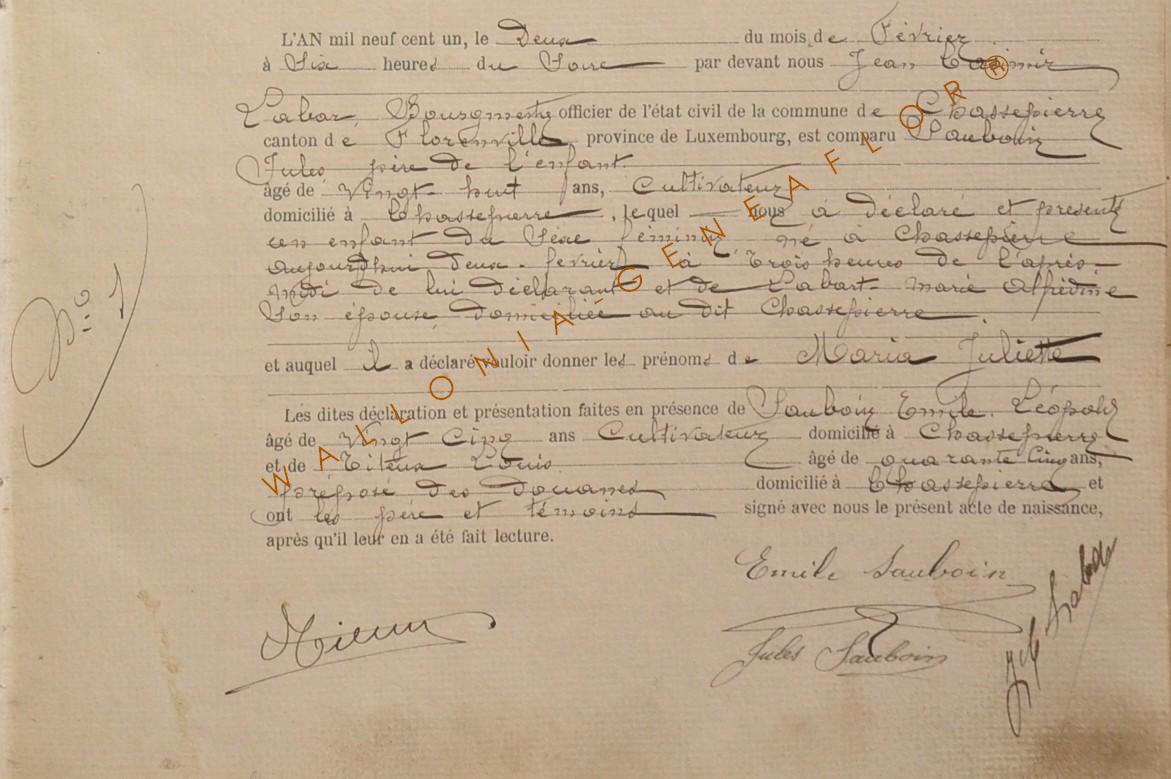 L'AN mil neuf cent un, le Deux du mois de Février
à Six heures du Soir par devant nous Jean Casimir
Labar, Bourgmestre officier de l'état civil de la commune de Chassepierre
canton de Florenville province de Luxembourg, est comparu Sauboin
Jules père de l'enfant
âgé de Vingt huit ans, Cultivateur
domicilié à Chassepierre, lequel nous à déclaré et présenté
un enfant du Sexe féminin né à Chassepierre
aujourdhui deux février à Trois heures de l'après
midi de lui déclarant et de Labart marie Alfrédine
Son épouse, domiciliée au dit Chassepierre
et auquel il a déclaré vouloir donner les prénoms de Maria Juliette
Les dites déclaration et présentation faites en présence de Sauboin Emile Léopold
âgé de Vingt Cinq ans Cultivateur domicilié à Chassepierre
et de Titeux Louis âgé de quarante Cinq ans,
préposé des douanes domicilié à Chassepierre et
ont les père et témoins signé avec nous le présent acte de naissance,
après qu'il leur en a été fait lecture.
N° 1
Emile Sauboin
Jules Sauboin
WALLONIA GENEAFLOR ®